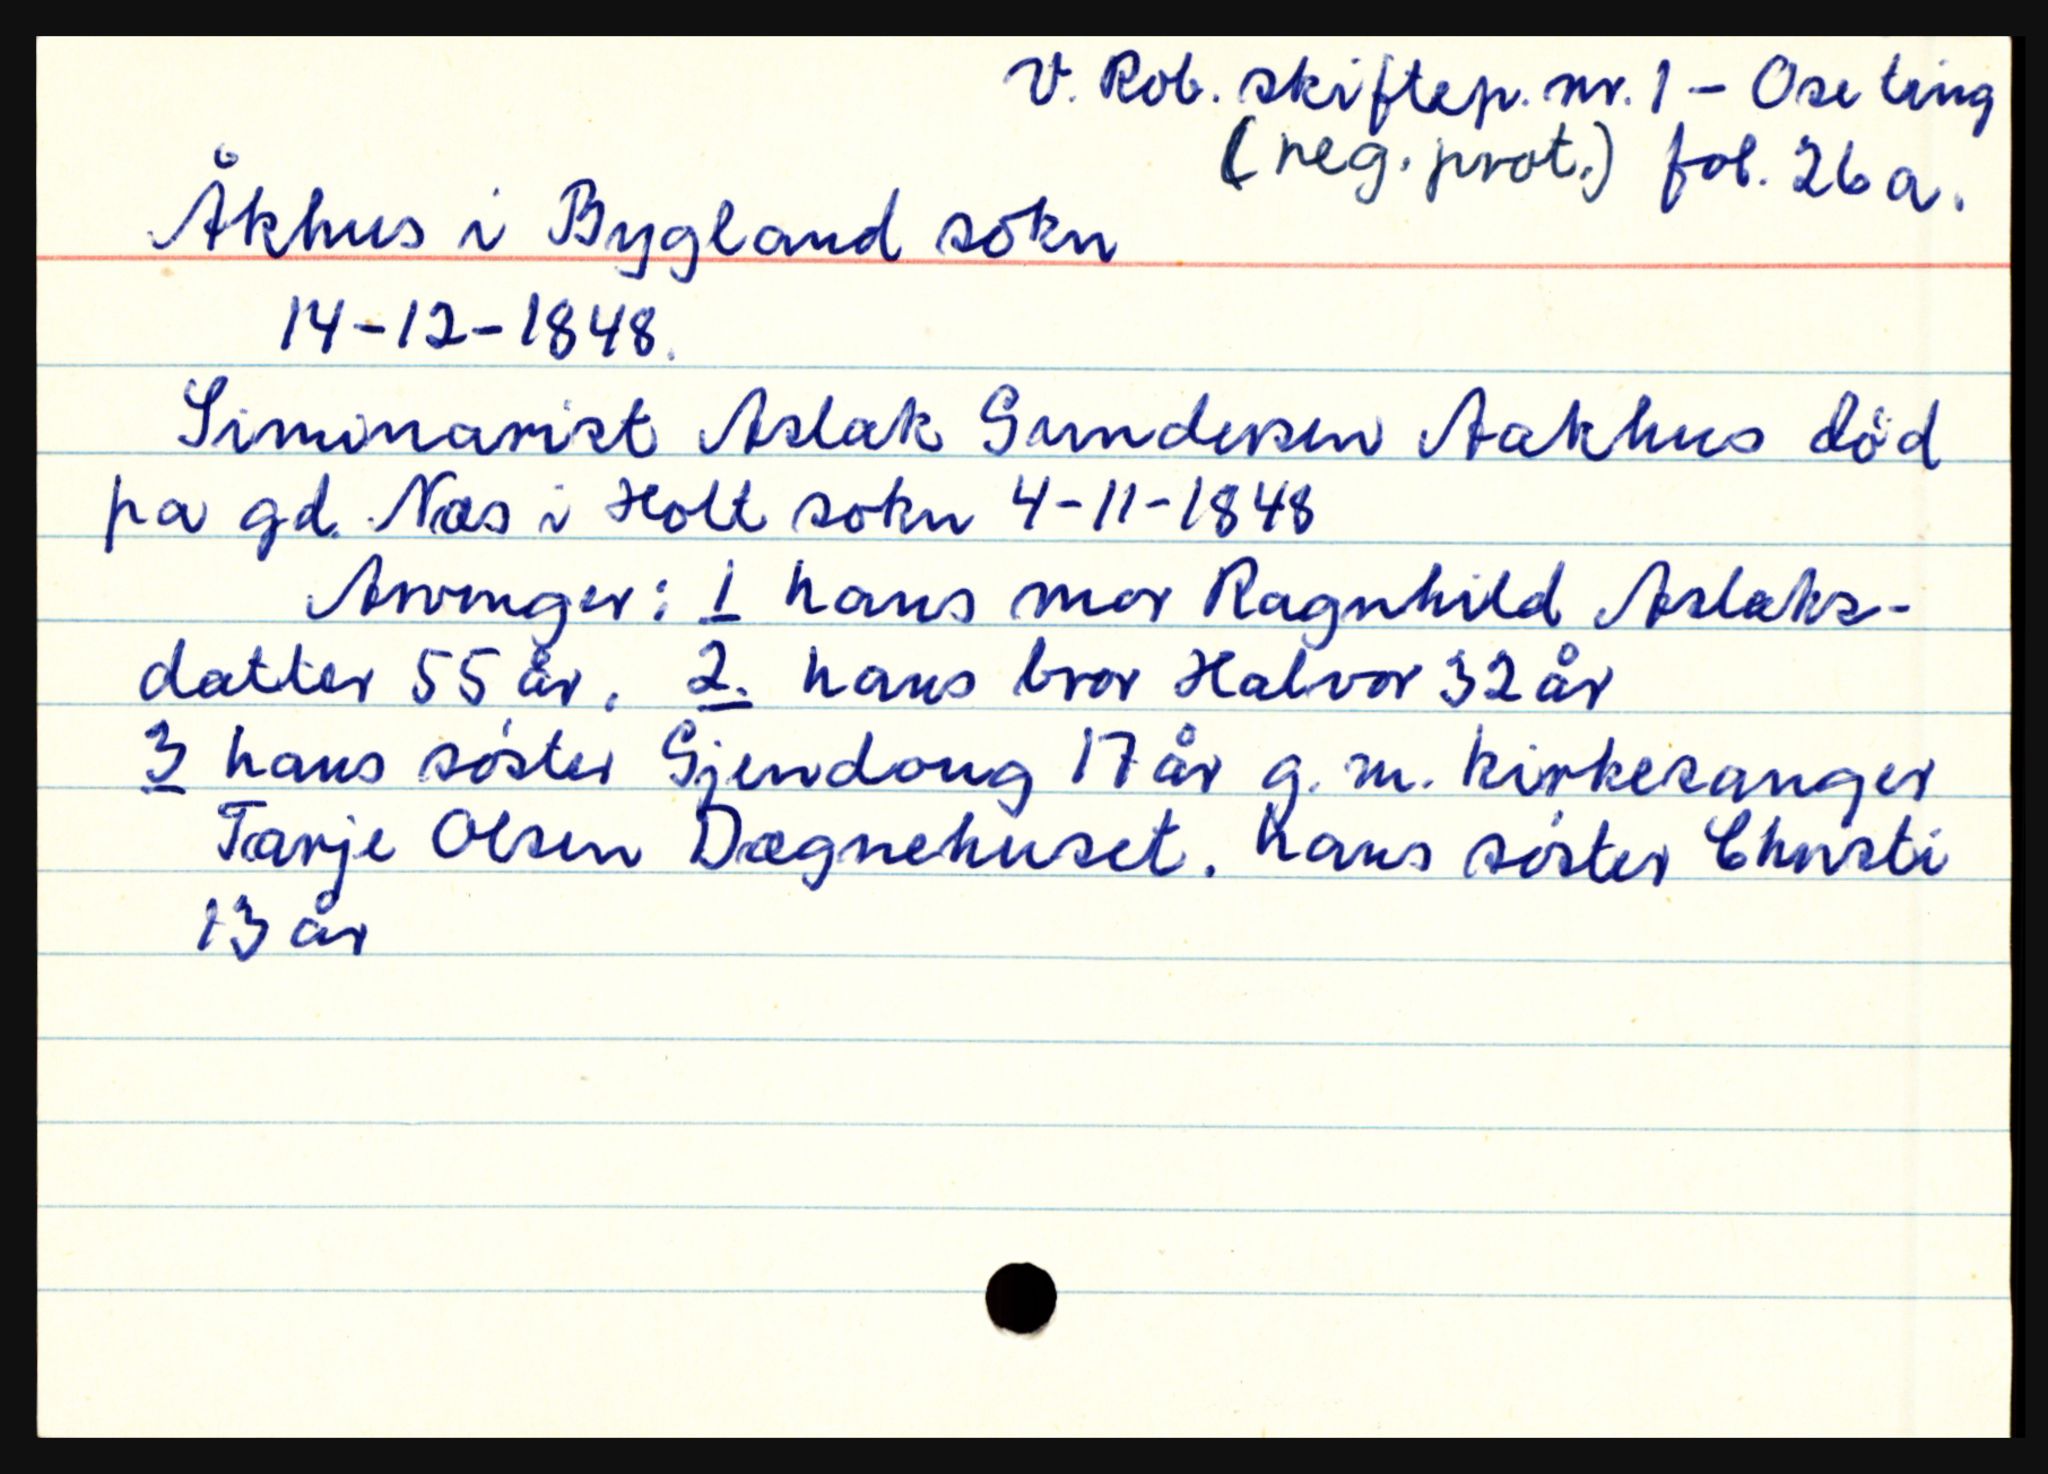 V. Rob. skiftep. nr. 1 - Ose ting
(reg. prot.) fol. 26a.
Åkhus i Bygland sokn
14-12-1848.
Siminarist Aslak Gundersen Aakhus död
pa gd. Næs i Holt sokn 4-11-1848
Arvinger: 1 hans mor Ragnhild Aslaks-
datter 55 år. 2. hans bror Halvor 32 år
3 hans söster Gjendoug 17 år g. m. kirkesanger
Tarje Olsen Dægnehuset. hans söster Christi
13 år